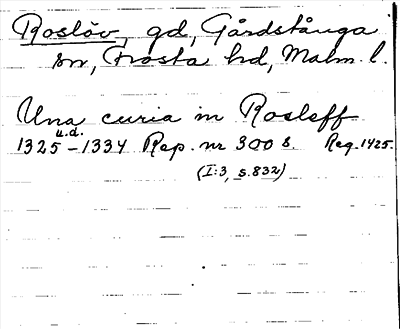 Roslöv, gd, Gårdstånga
sn, Frosta hd, Malm. l.
Una curia in Rosleff
u.d.
1325 - 1334 Rep. nr 300 s. Reg. 1425.
(I:3, s. 832)